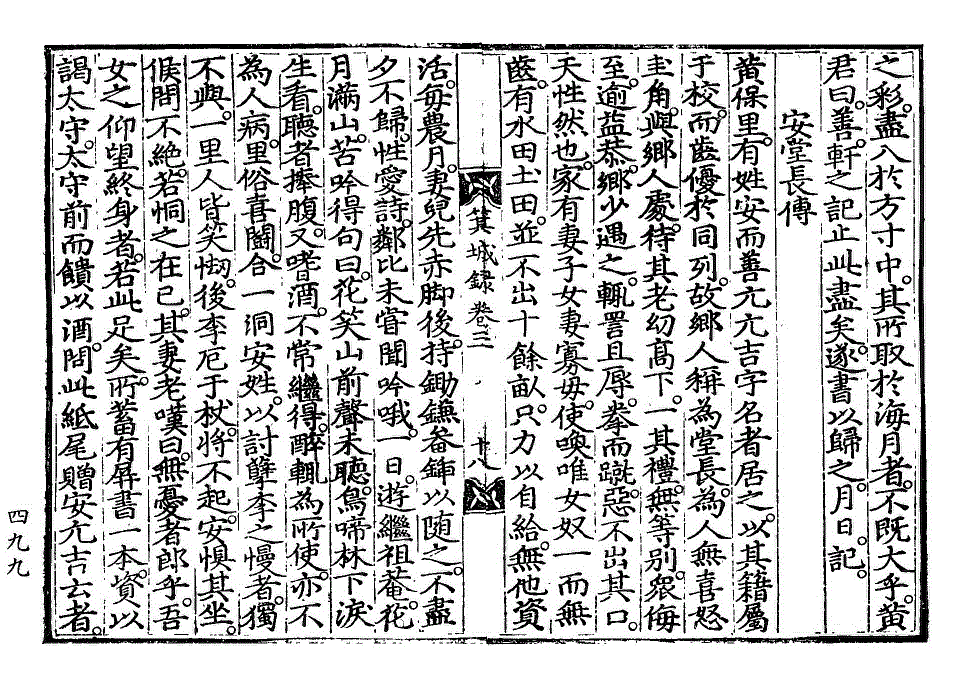 之彩。盡入於方寸中。其所取於海月者。不既大乎。黄
君曰。善。軒之記止此盡矣。遂書以歸之。月日。記。
安堂長傳
黄保里。有姓安而善元亢吉字名者居之。以其籍屬
于校。而齒優於同列。故鄉人稱為堂長。為人無喜怒
圭角。與鄉人處。待其老幼高下。一其禮。無等別。衆侮
至。逾益恭。鄉少遇之。輒詈且辱。拳而蹴。惡不出其口。
天性然也。家有妻子女妻寡毋。使喚唯女奴一而無
齒。有水田土田。並不出十餘畝。只力以自給。無他資
箕城録 卷三 十八
活。每農月。妻兒先赤脚後。持鋤鐮畚鍤以随之。不盡
夕不歸。性愛詩。鄰比未甞聞吟哦。一日。遊繼祖菴。花
月滿山。苦吟得句曰。花笑山前聲未聽。鳥啼林下淚
生看。聽者捧腹。又嗜酒。不常繼得。醉輒為所使。亦不
為人病。里俗喜鬪。合一洞安姓。以討孽李之慢者。獨
不與。一里人皆笑㤼。後李厄于杖。將不起。安惧其坐。
候問不絶。若恫之在已。其妻老嘆曰。無憂者郎乎。吾
女之仰望終身者。若此足矣。所蓄有屏書一本。資以
謁太守。太守前而饋以酒問此紙尾贈安亢吉云者。
四九九